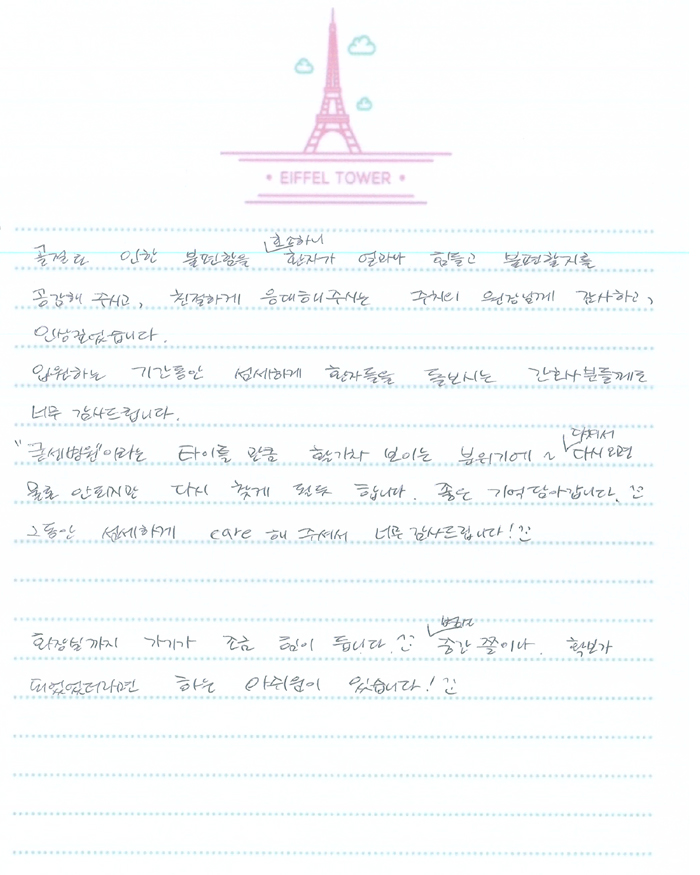 • EIFFEL TOWER •
호소하니
골절로 인한 불편함을 환자가 얼마나 힘들고 불편할지를
공감해 주시고, 친절하게 응대해주시는 주치의 원장님께 감사하고,
인상깊었습니다.
입원하는 기간동안 섬세하게 환자들을 돌보시는 간호사분들께도
너무 감사드립니다.
다쳐서
"굳세병원"이라는 타이틀 만큼 활기차 보이는 분위기에 ~ 다시오면
물론 안되지만 다시 찾게 될듯 합니다. 좋은 기억담아갑니다.
그동안 섬세하게 care 해 주셔서 너무 감사드립니다!
화장실까지 가기가 조금 힘이 듭니다. 중간 쯤이나 확보가
되었었더라면 하는 아쉬움이 있습니다!